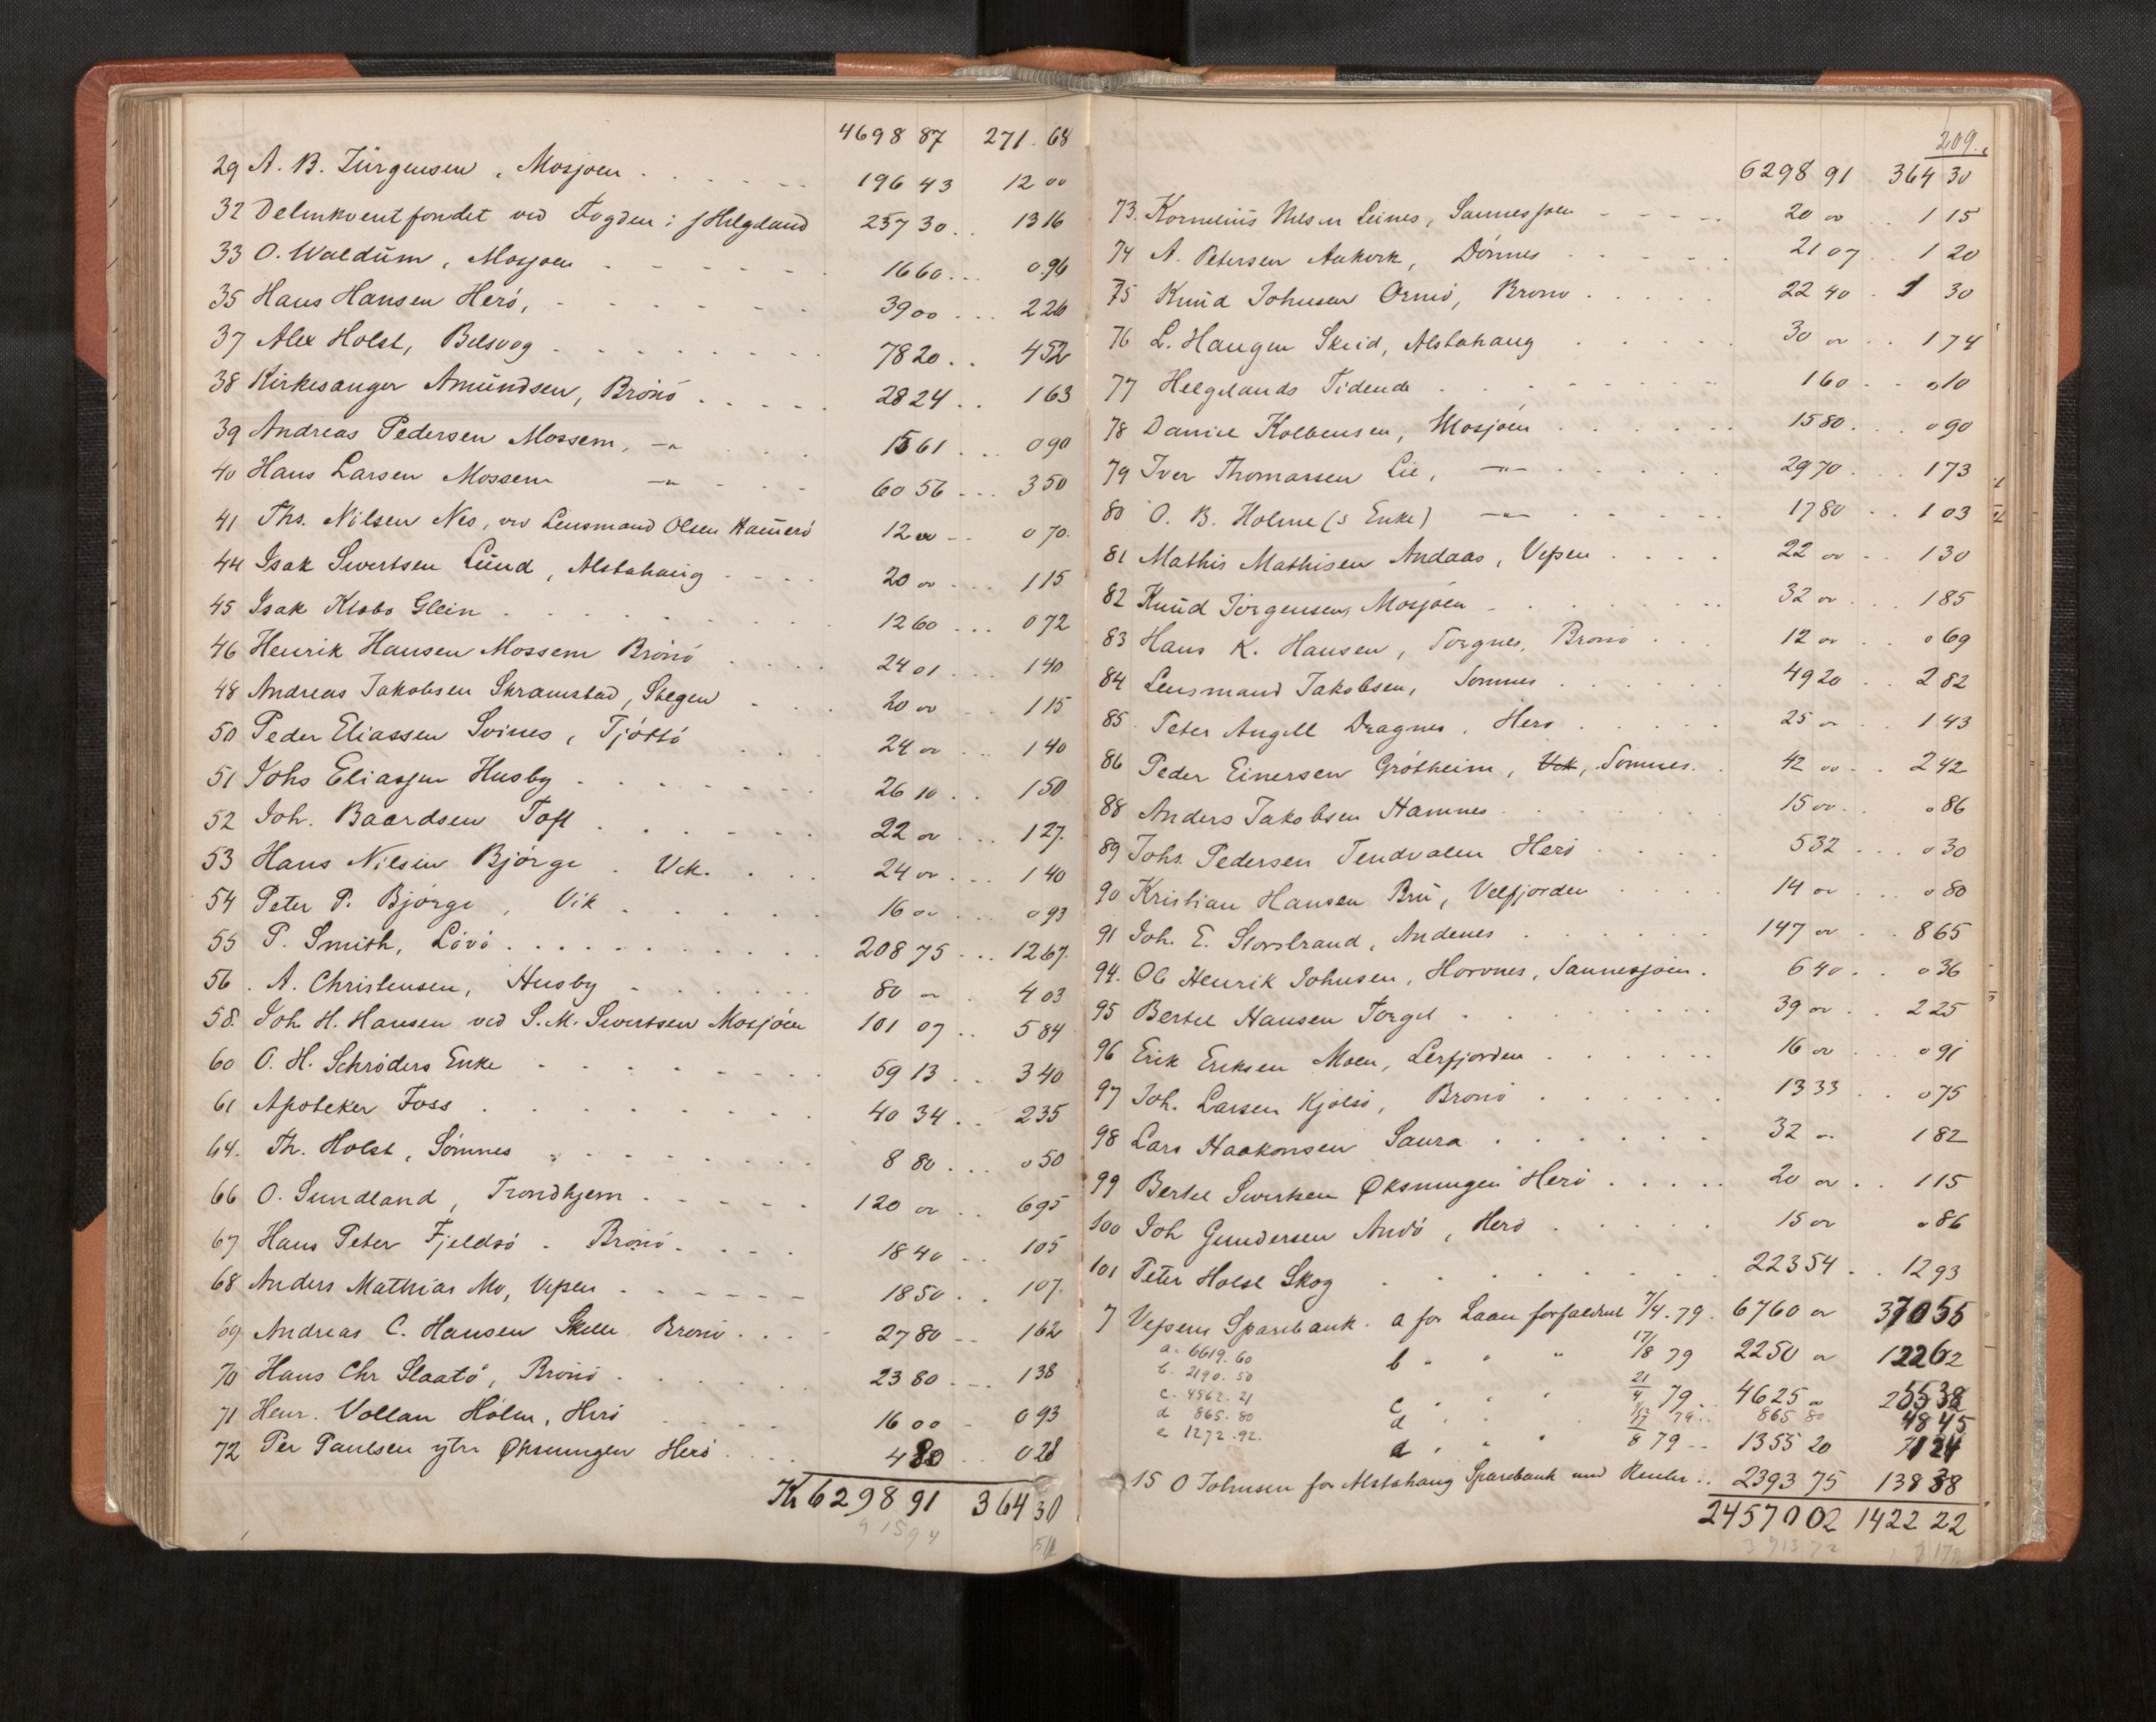 4698 87 271.68
29 A. B. Jürgensen, Mosjøen 196 43 12 00
32 Delinkventfondet ved Fogden i s Helgeland 257 30 13 16
33 O. Waldum, Mosjøen 16 60 0.96
35 Hans Hansen Herö, 39 00 2 26
37 Alex Holst, Belsvog 78 20 4 52
38 Kirkesanger Amundsen, Brönö 28 24 1 63
39 Andreas Pedersen Mossem, -"- 15 61 0 90
40 Hans Larsen Mossem -"- 60 56 3 50
41 Ths. Nilsen Nes, ved Lensmand Olsen Hamerö 12 00 0 70.
44 Isak Sivertsen Lund, Alstahaug 20 00 1 15
45 Isak Klobs Glein 12 60 0 72
46 Henrik Hansen Mossem Brönö 24 01 1 40
48 Andreas Jakobsen Skramstad, Stegen 20 00 1 15
50 Peder Eliassen Svines, Tjöttö 24 00 1 40
51 Johs Eliassen Husby 26 10 1 50
52 Joh. Baardsen Toft 22 00 1 27.
53 Hans Nilsen Björge. Vik. 24 00 1 40
54 Peter P. Björge, Vik 16 00 0 93
55 P. Smith, Lövö 208 75 12 67.
56. A. Christensen, Husby 80 00 4 03
58. Joh. H. Hansen ved S. M. Sivertsen Mosjöen 101 07 5 84
60 O. H. Schröders Enke 59 13 3 40
61 Apoteker Foss 40 34 2 35
64. Th. Holst, Sömnes 8 80 0 50
66 O. Sundland, Trondhjem 120 00 6 95
67 Hans Peter Fjeldsö. Brönö. 18 40 1 05
68 Anders Mathias Mo, Vefsen 18 50 1 07.
69 Andreas C. Hansen Skille Brönö 27 80 1 62
70 Hans Chr Slaatö, Brönö 23 80 1 38
71 Henr. Vollan Holm, Herö 16 00 0 93
72 Per Paulsen ytre Øksningen Herö 4 80 0 28
Kr 6298 91 364 30
209.
6298 91 364 30
73. Kornelius Nilsen Leines, Sannesjøen 20 00 1 15
74 A. Petersen Aakvik, Dönnes 21 07 1 20
75 Knud Johnsen Örnö, Brönö 22 40 1 30
76 L. Haugen Skeid, Alstahaug 30 00 1 74
77 Helgelands Tidende 1 60 0 10
78 Daniel Kolbensen, Mosjöen 15 80 0 90
79 Iver Thomassen Lie, -"- 29 70 1 73
80 O. B. Holme (s Enke) -"- 17 80 1 03
81 Mathis Mathisen Andaas, Vefsen 22 00 1 30
82 Knud Jörgensen, Mosjöen 32 00 1 85
83 Hans K. Hansen, Torgnes, Brönö 12 00 0 69
84 Lensmand Jakobsen, Sömnes 49 20 2 82
85. Peter Angell Dragnes, Herö 25 00 1 43
86 Peder Einersen Grötheim, Vik, Sömnes. 42 00 2 42
88 Anders Jakobsen Hamnes 15 00 0 86
89 Johs. Pedersen Tendvalen Herö 5 32 0 30
90 Kristian Hansen Bru, Velfjorden 14 00 0 80
91 Joh. E. Storstrand, Andenes 147 00 8 65
94. Ole Henrik Johnsen, Horvnes, Sannesjöen. 6 40 0 36
95 Bertel Hansen Forgel 39 00 2 25
96 Erik Eriksen Moen, Lerfjorden 16 00 0 91
97 Joh. Larsen Kjölsö, Brönö 13 33 0 75
98 Lars Haakonsen Saura 32 00 1 82
99 Bertel Sivertsen Øksningen Herö 20 00 1 15
100 Joh Gundersen Andö, Herö 15 00 0 86
101 Peter Holst Skog 223 54 12 93
7 Vefsens Sparebank. a for Laan forfaldent 7/4. 79. 6760 00 370 55
a. 6619.60
b " " " 17/8 79 2250 00 122 62
b. 2190.50
c. 4562.21
c " " 21/4 79 4625 00
d 865.80
d 865 80 48 45
e 1272.92.
" " 8 79 1355 20 71 24
15 O Johnsen for Alstahaug Sparebank med Renter 2393 75 138 38
24570 02 1422 22